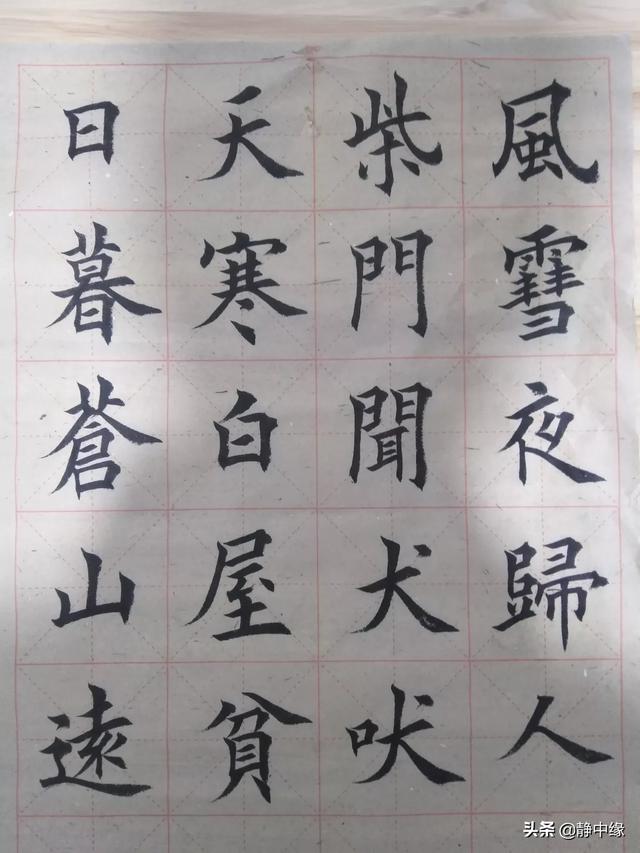 日暮蒼山遠
天寒白屋貧
柴門聞犬吠
風䨮夜歸人
头条 @静中缘